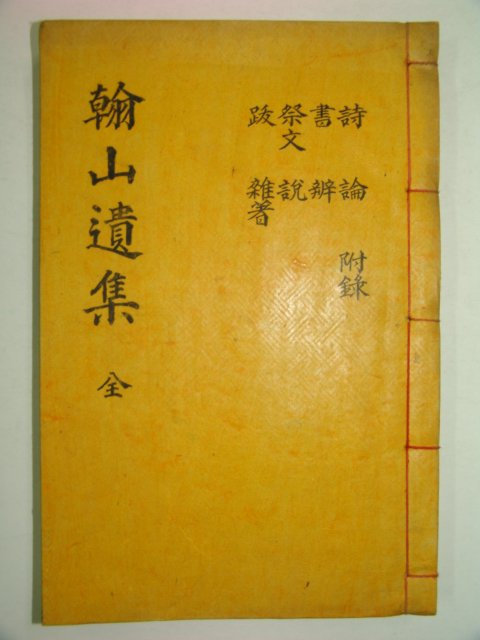 翰山遺集 全
詩 論 附錄
書 辨
祭文 說
跋 雜著